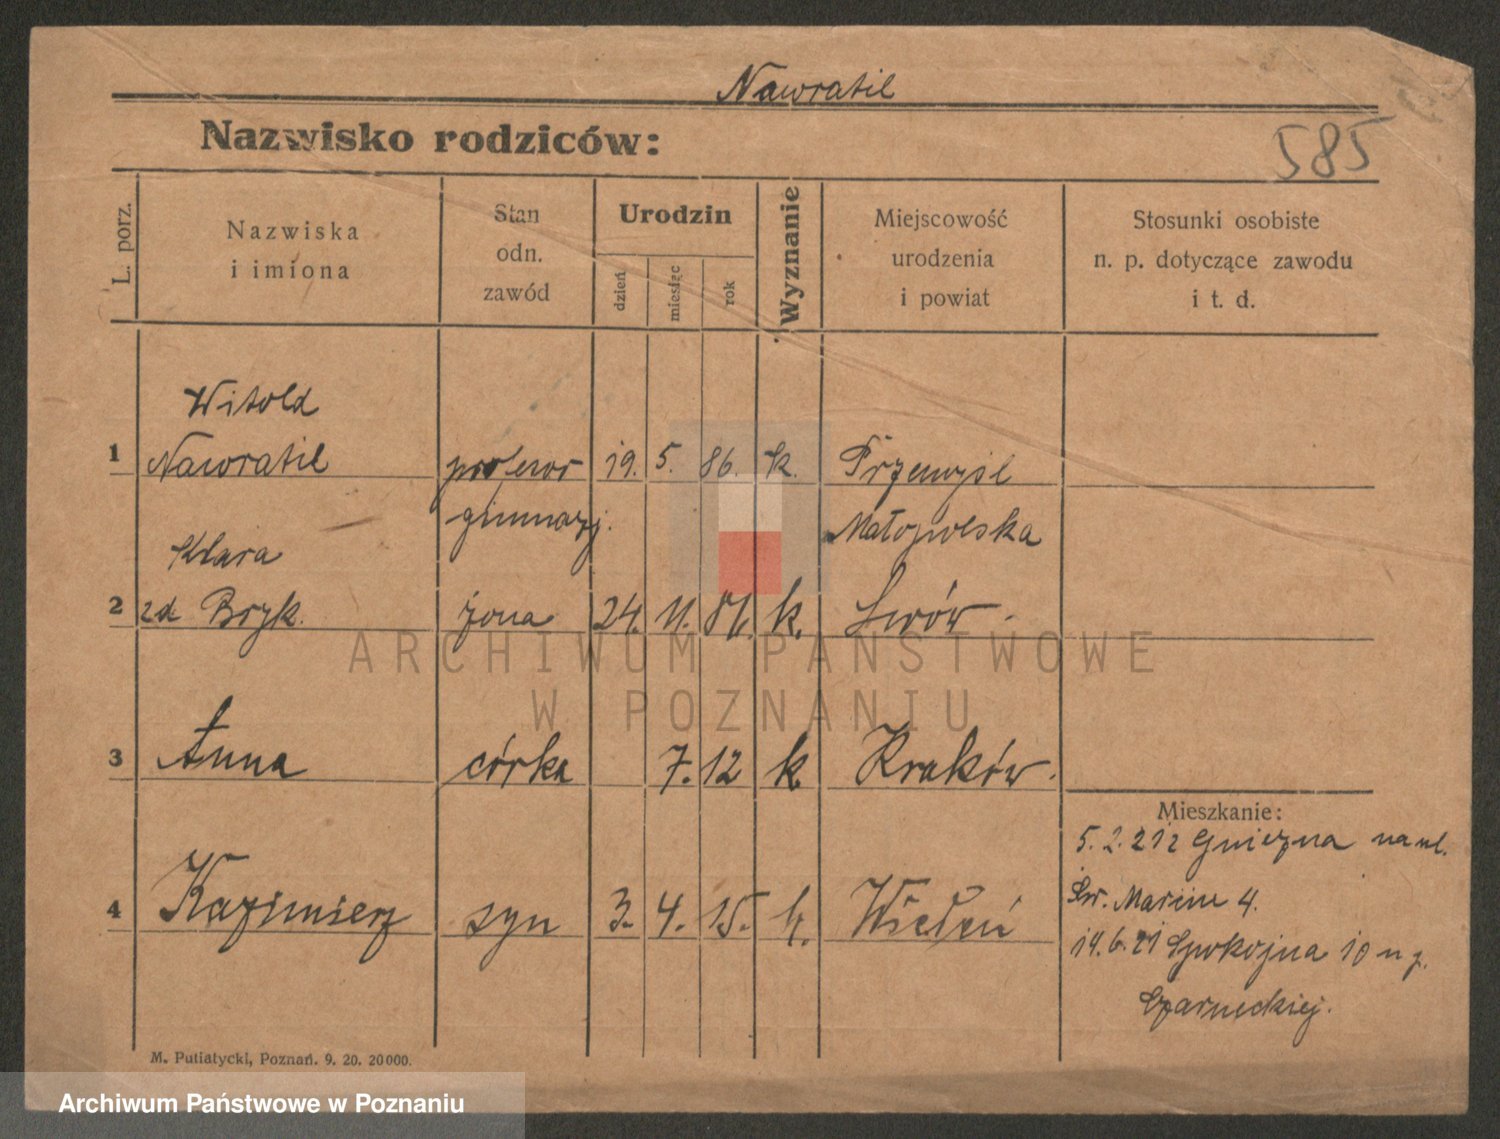 Nawratil
Nazwisko rodziców:
585
L. porz.
Nazwiska
i imiona
Stan
odn.
zawód
Urodzin
dzień
miesiąc
rok
Wyznanie
Miejscowość
urodzenia
i powiat
Stosunki osobiste
n. p. dotyczące zawodu
i t. d.
Witold
1 Nawratil profesor 19. 5. 86. k. Przemyśl
gimnazj. Małopolska
Klara
2 zd Bryk. żona 24. 11. 86. k. Lwów
3 Anna córka 7. 12 k Kraków.
Mieszkanie:
5. 2. 21 z Gniezna na ul.
4 Kazimierz syn 3. 4. 15. k. Wiedeń
Św. Marcin 4.
14. 6. 21 Spokojna 10 u p.
Czarneckiej.
M. Putiatycki, Poznań. 9. 20. 20000.
ARCHIWUM PAŃSTWOWE
W POZNANIU
Archiwum Państwowe w Poznaniu